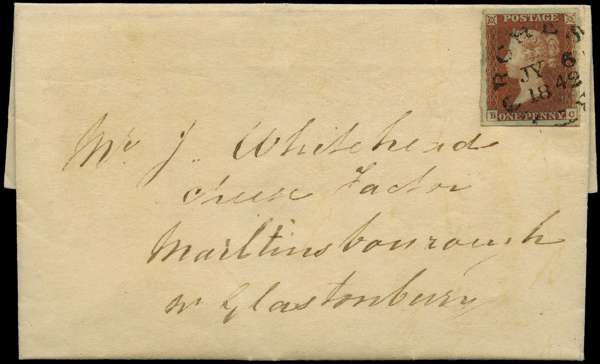 POSTAGE
JY 6
1842
B ONE PENNY C
Mr J. Whitehead
Cheese Factor
Marltinsbourough
nr Glastonbury